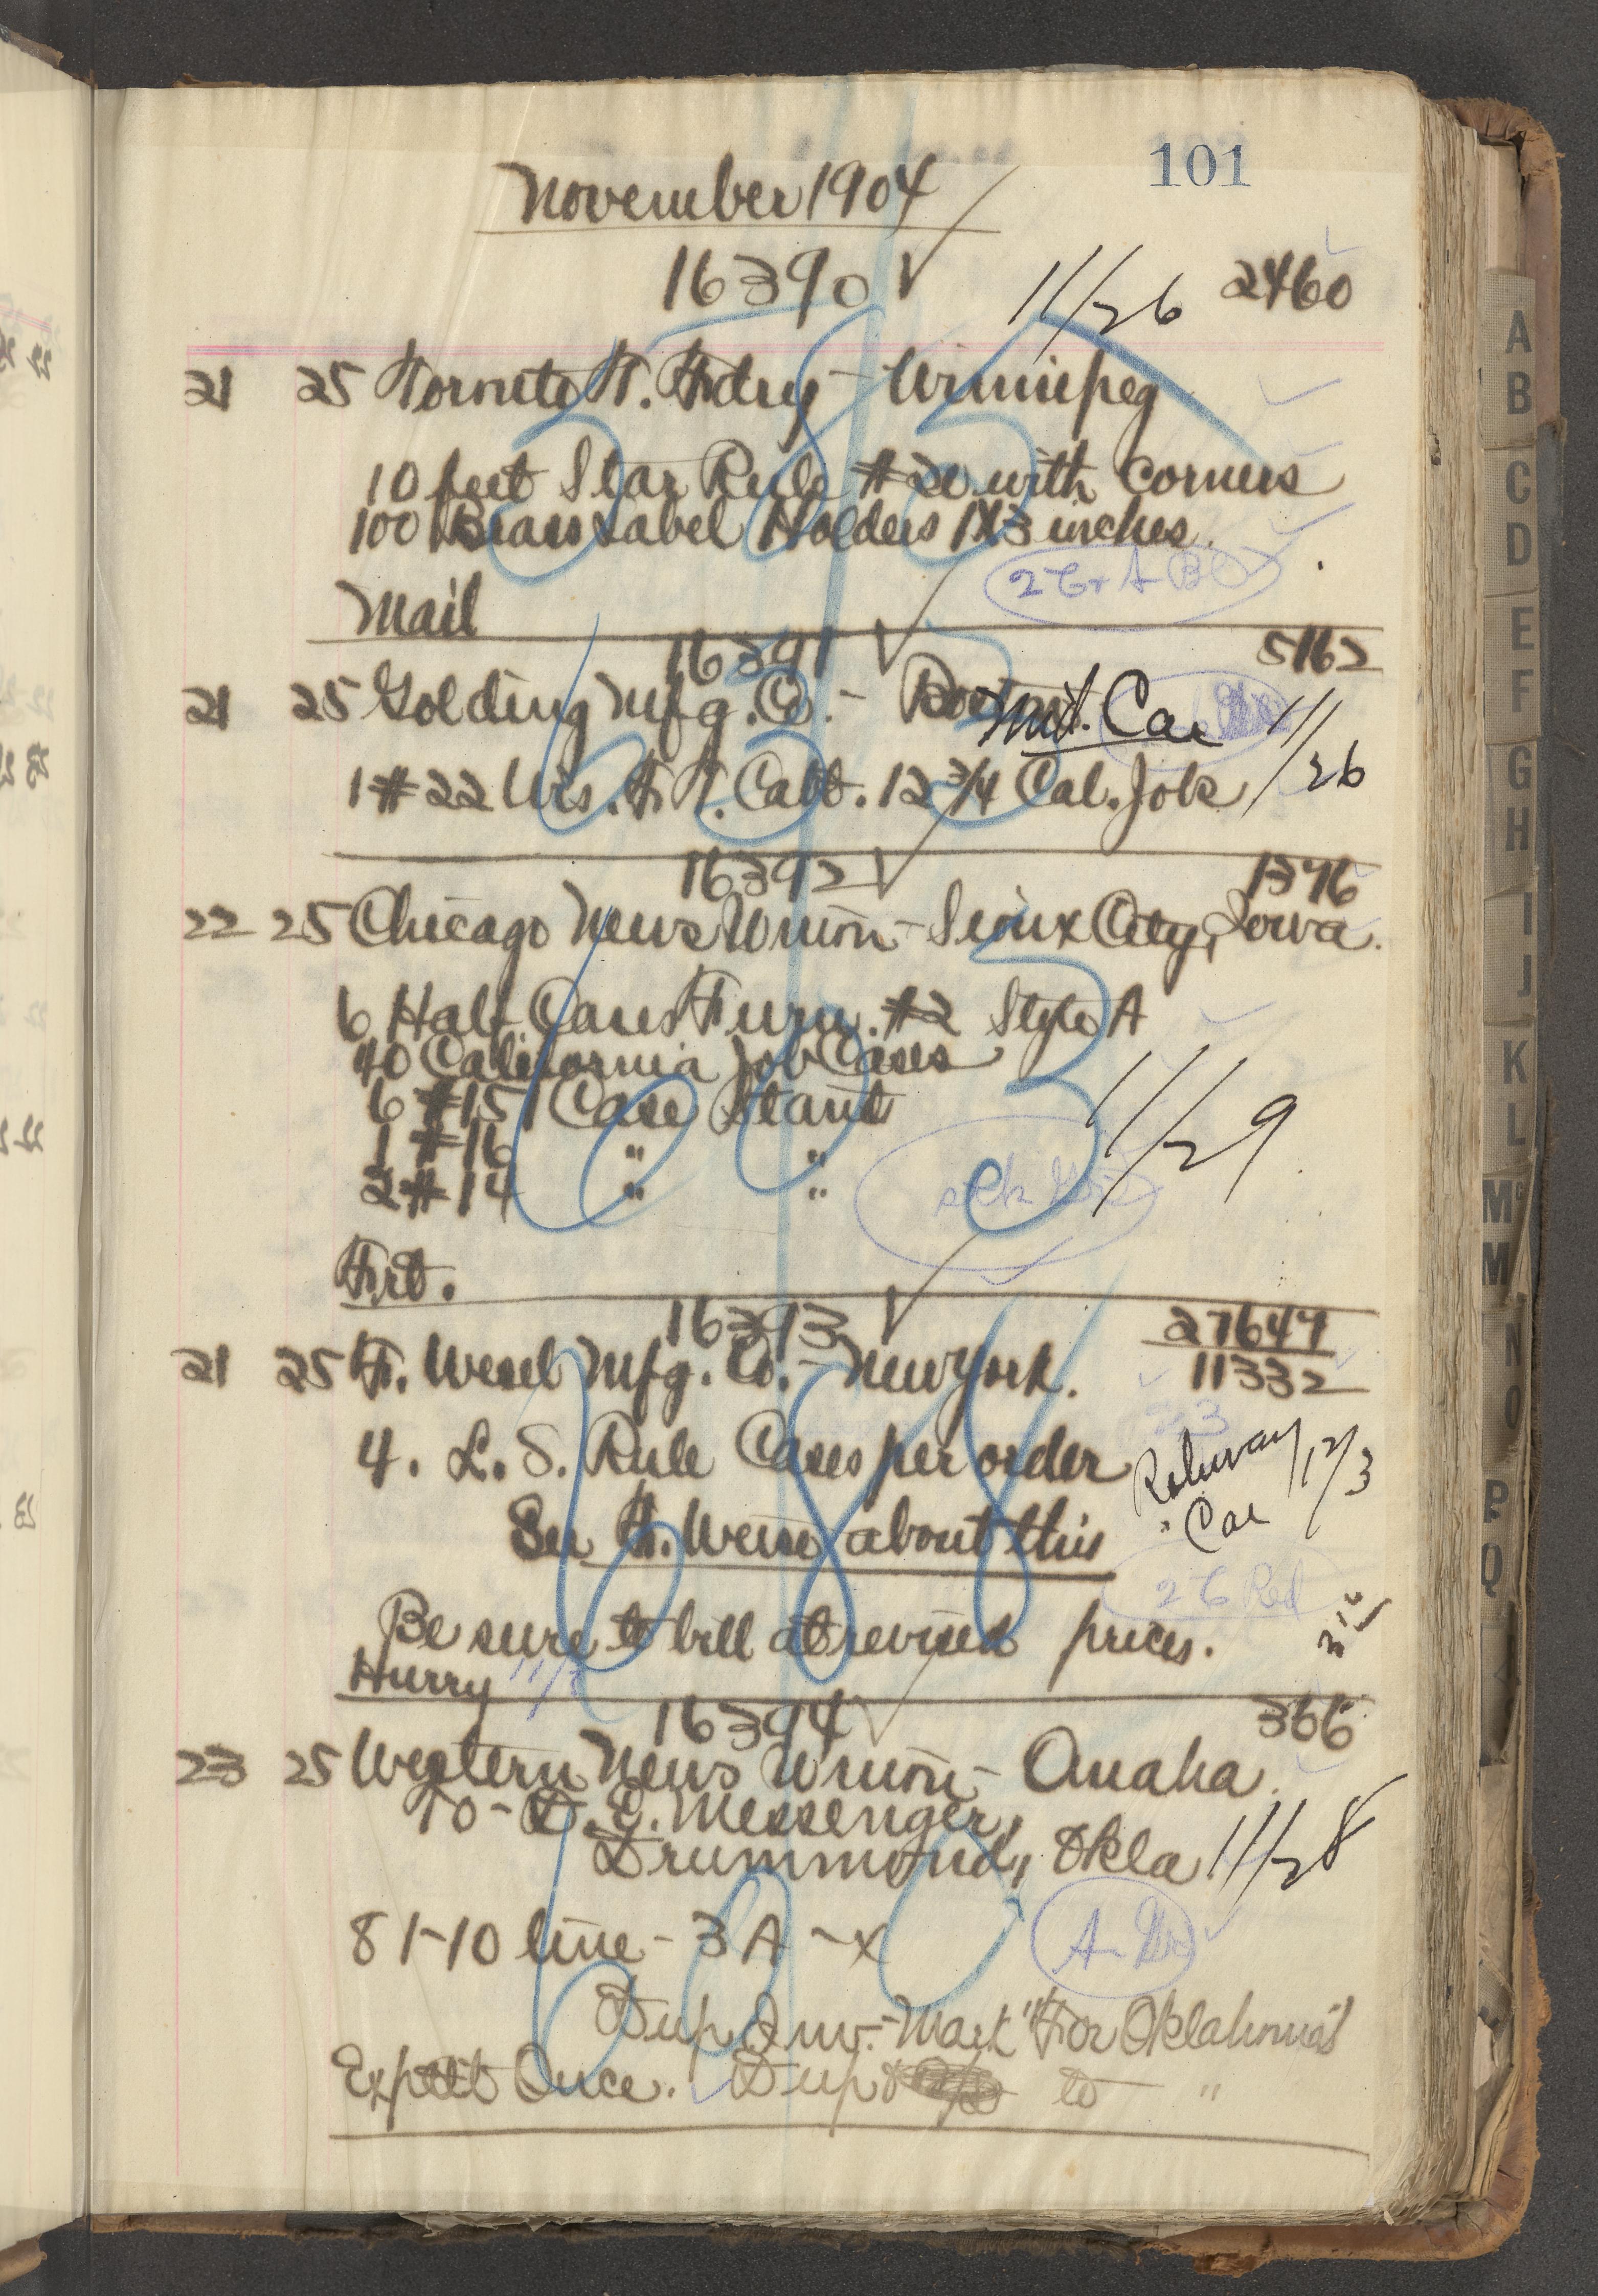 101
November 1904
16390 ✓ 11/26 2460
21 25 Toronto T. Fdry - Winnipeg
10 feet Star Rule #20 with Corners
100 Brass Label Holders 1X3 inches.
Mail
16391 ✓ 5162
21 25 Golding Mfg. Co. - Mil. Car 11/26
1 #22 Wis. F. T. Cabt. 12 3/4 Cal. Job
16392 ✓ 1376
22 25 Chicago News Union - Sioux City, Iowa.
6 Half Cases Furn. #2 Style A
40 California Job Cases
6 #15 Case Stand 11/29
1 #16 " "
2 #14 " "
Frt.
16393 ✓ 27647
21 25 F. Wesel Mfg. Co. - New York. 11332
4. L. S. Rule Cases per order
12/3
Car
See H. Weiss about this
Be sure to bill at revised prices.
Hurry
16394 ✓ 366
23 25 Western News Union - Omaha.
To - E. Messenger,
Drummond, Okla 11/28
8 1-10 line - 3A - x
Dup Inv. - Mark "For Oklahoma"
Exp at Once. Dup & to "
A B C D E F G H I J K L Mc M N O P Q